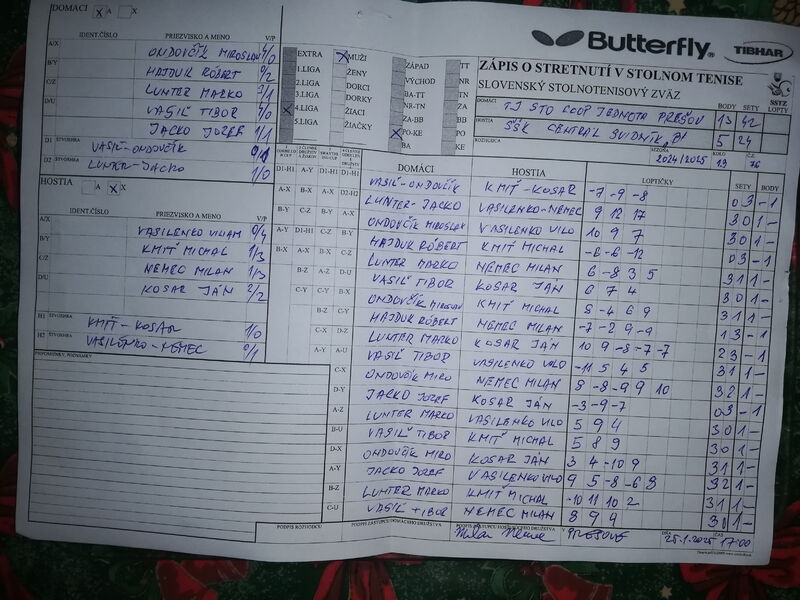 DOMÁCI X A X
IDENT.ČÍSLO PRIEZVISKO A MENO V/P
A/X ONDOVČÍK MIROSLAV 4/0
B/Y HAJDUK RÓBERT 0/2
C/Z LUNTER MARKO 3/1
D/U VASIĽ TIBOR 4/0
JACKO JOZEF 1/1
D1 ŠTVORHRA VASIĽ-ONDOVČÍK 0/1
D2 ŠTVORHRA LUNTER-JACKO 1/0
HOSTIA A X X
IDENT.ČÍSLO PRIEZVISKO A MENO V/P
A/X VASILENKO VILIAM 0/4
B/Y KMIŤ MICHAL 1/3
C/Z NEMEC MILAN 1/3
D/U KOSAR JÁN 2/2
H1 ŠTVORHRA KMIŤ-KOSAR 1/0
H2 ŠTVORHRA VASILENKO-NEMEC 0/1
PRIPOMIENKY, POZNÁMKY
EXTRA X MUŽI ZÁPAD TT
1.LIGA ŽENY VÝCHOD NR
2.LIGA DORCI BA-TT TN
3.LIGA DORKY NR-TN ZA
X 4.LIGA ŽIACI ZA-BB BB
5.LIGA ŽIAČKY X PO-KE PO
BA KE
Butterfly TIBHAR
ZÁPIS O STRETNUTÍ V STOLNOM TENISE
SLOVENSKÝ STOLNOTENISOVÝ ZVÄZ
SSTZ
BODY SETY LOPTY
DOMÁCI TJ STO COOP JEDNOTA PREŠOV 13 42
HOSTIA ŠŠK CENTRAL SVIDNÍK "B" 5 24
ROZHODCA SEZÓNA 2024/2025 KOLO 13 Č.Z. 76
DOMÁCI HOSTIA LOPTIČKY SETY BODY
VASIĽ-ONDOVČÍK KMIŤ-KOSAR -7 -9 -8 0 3 - 1
LUNTER-JACKO VASILENKO-NEMEC 9 12 17 3 0 1 -
ONDOVČÍK MIROSLAV VASILENKO VILO 10 9 7 3 0 1 -
HAJDUK RÓBERT KMIŤ MICHAL -6 -6 -12 0 3 - 1
LUNTER MARKO NEMEC MILAN 6 -8 3 5 3 1 1 -
VASIĽ TIBOR KOSAR JÁN 6 7 4 3 0 1 -
ONDOVČÍK MIROSLAV KMIŤ MICHAL 5 -4 6 9 3 1 1 -
HAJDUK RÓBERT NEMEC MILAN -7 -2 9 -9 1 3 - 1
LUNTER MARKO KOSAR JÁN 10 9 -8 -7 -7 2 3 - 1
VASIĽ TIBOR VASILENKO VILO -11 5 4 5 3 1 1 -
ONDOVČÍK MIRO NEMEC MILAN 8 -8 -9 9 10 3 2 1 -
JACKO JOZEF KOSAR JÁN -3 -9 -7 0 3 - 1
LUNTER MARKO VASILENKO VILO 5 9 4 3 0 1 -
VASIĽ TIBOR KMIŤ MICHAL 5 8 9 3 0 1 -
ONDOVČÍK MIRO KOSAR JÁN 3 4 -10 9 3 1 1 -
JACKO JOZEF VASILENKO VILO 9 5 -8 -6 8 3 2 1 -
LUNTER MARKO KMIŤ MICHAL -10 11 10 2 3 1 1 -
VASIĽ TIBOR NEMEC MILAN 8 9 4 3 0 1 -
PODPIS ROZHODCU PODPIS ZÁSTUPCU DOMÁCEHO DRUŽSTVA PODPIS ZÁSTUPCU HOSŤUJÚCEHO DRUŽSTVA DŇA ČAS
Milan Nemec PREŠOVE 25.1.2025 17:00